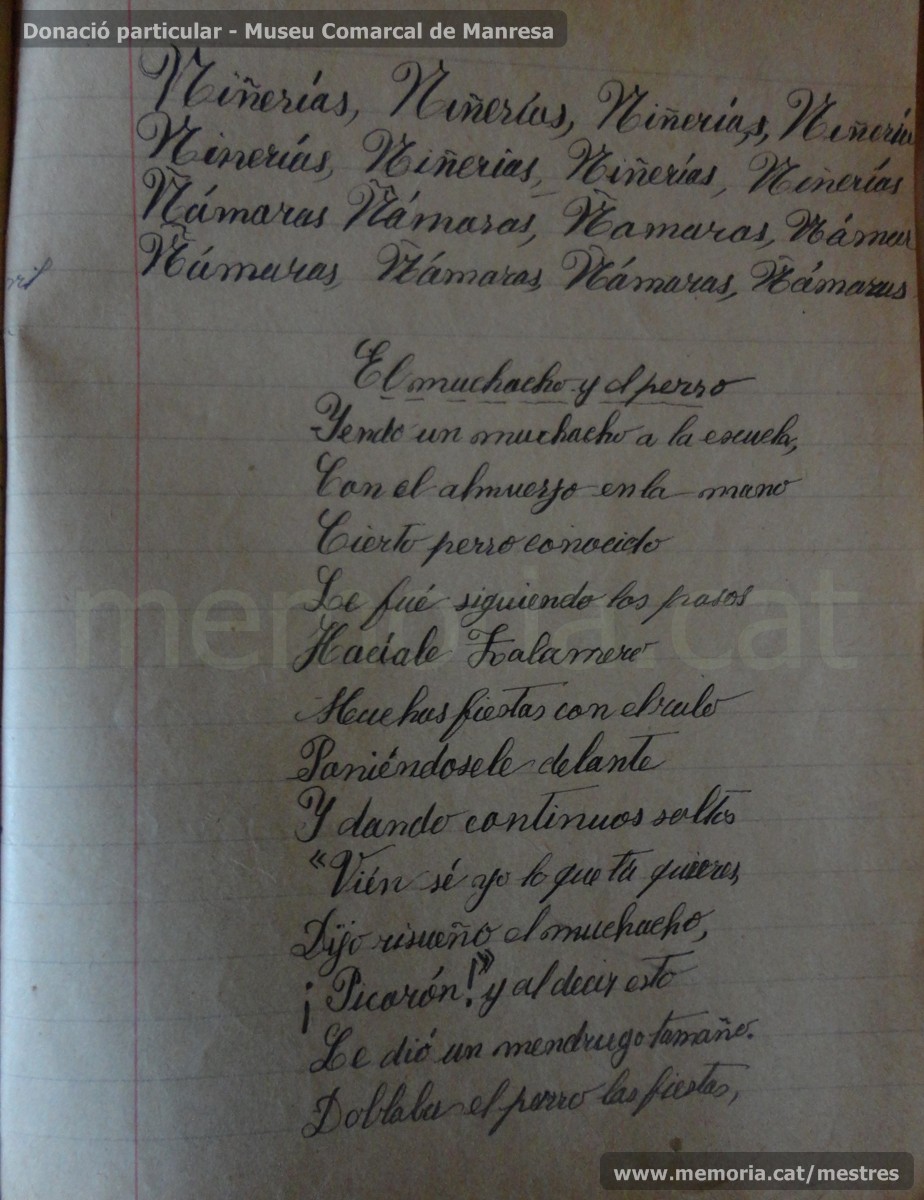 Donació particular - Museu Comarcal de Manresa
Niñerías, Niñerías, Niñerías, Niñería
Ninerías, Niñerias, Niñerías, Niñerías
Ñámaras Ñámaras, Ñamaras, Námar
Ñámaras, Ñámaras, Ñámaras, Ñámaras
El muchacho y el perro
Yendo un muchacho a la escuela,
Con el almuerzo en la mano
Cierto perro conocido
Le fué siguiendo los pasos
memoria.cat
Hacíale Zalamero
Muchas fiestas con el rabo
Poniéndosele delante
Y dando continuos saltos
"Vién sé yo lo que tú quieres,
Dijo risueño el muchacho,
¡Picarón!" y al decir esto
Le dió un mendrugo tamaño.
Doblaba el perro las fiestas,
www.memoria.cat/mestres